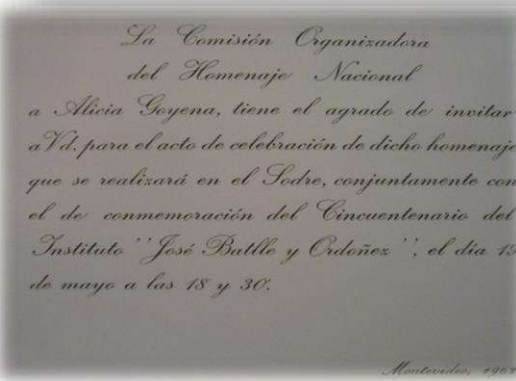 La Comisión Organizadora
del Homenaje Nacional
a Alicia Goyena, tiene el agrado de invitar
a Vd. para el acto de celebración de dicho homenaje
que se realizará en el Sodre, conjuntamente con
el de conmemoración del Cincuentenario del
Instituto "José Batlle y Ordoñez", el día
de mayo a las 18 y 30.
Montevideo,